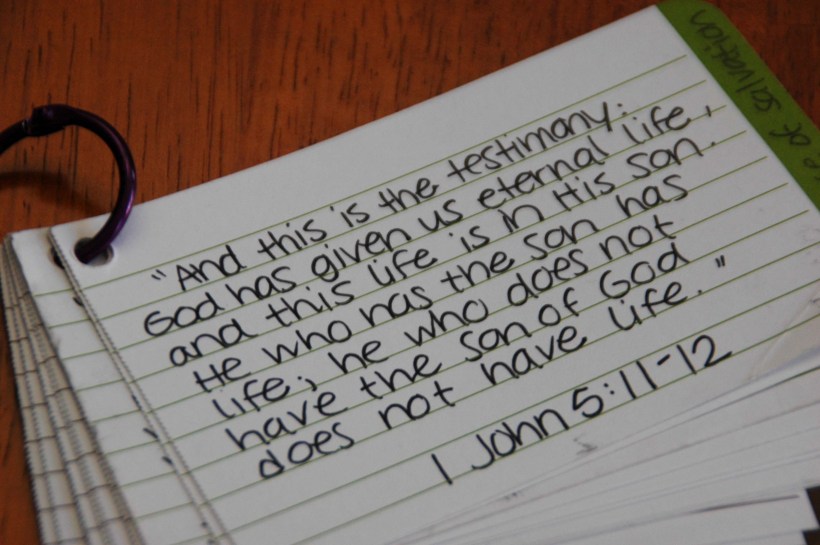 "And this is the testimony:
God has given us eternal life,
and this life is in His son.
He who has the son has
life; he who does not
have the son of God
does not have life."
1 John 5:11-12
of salvation